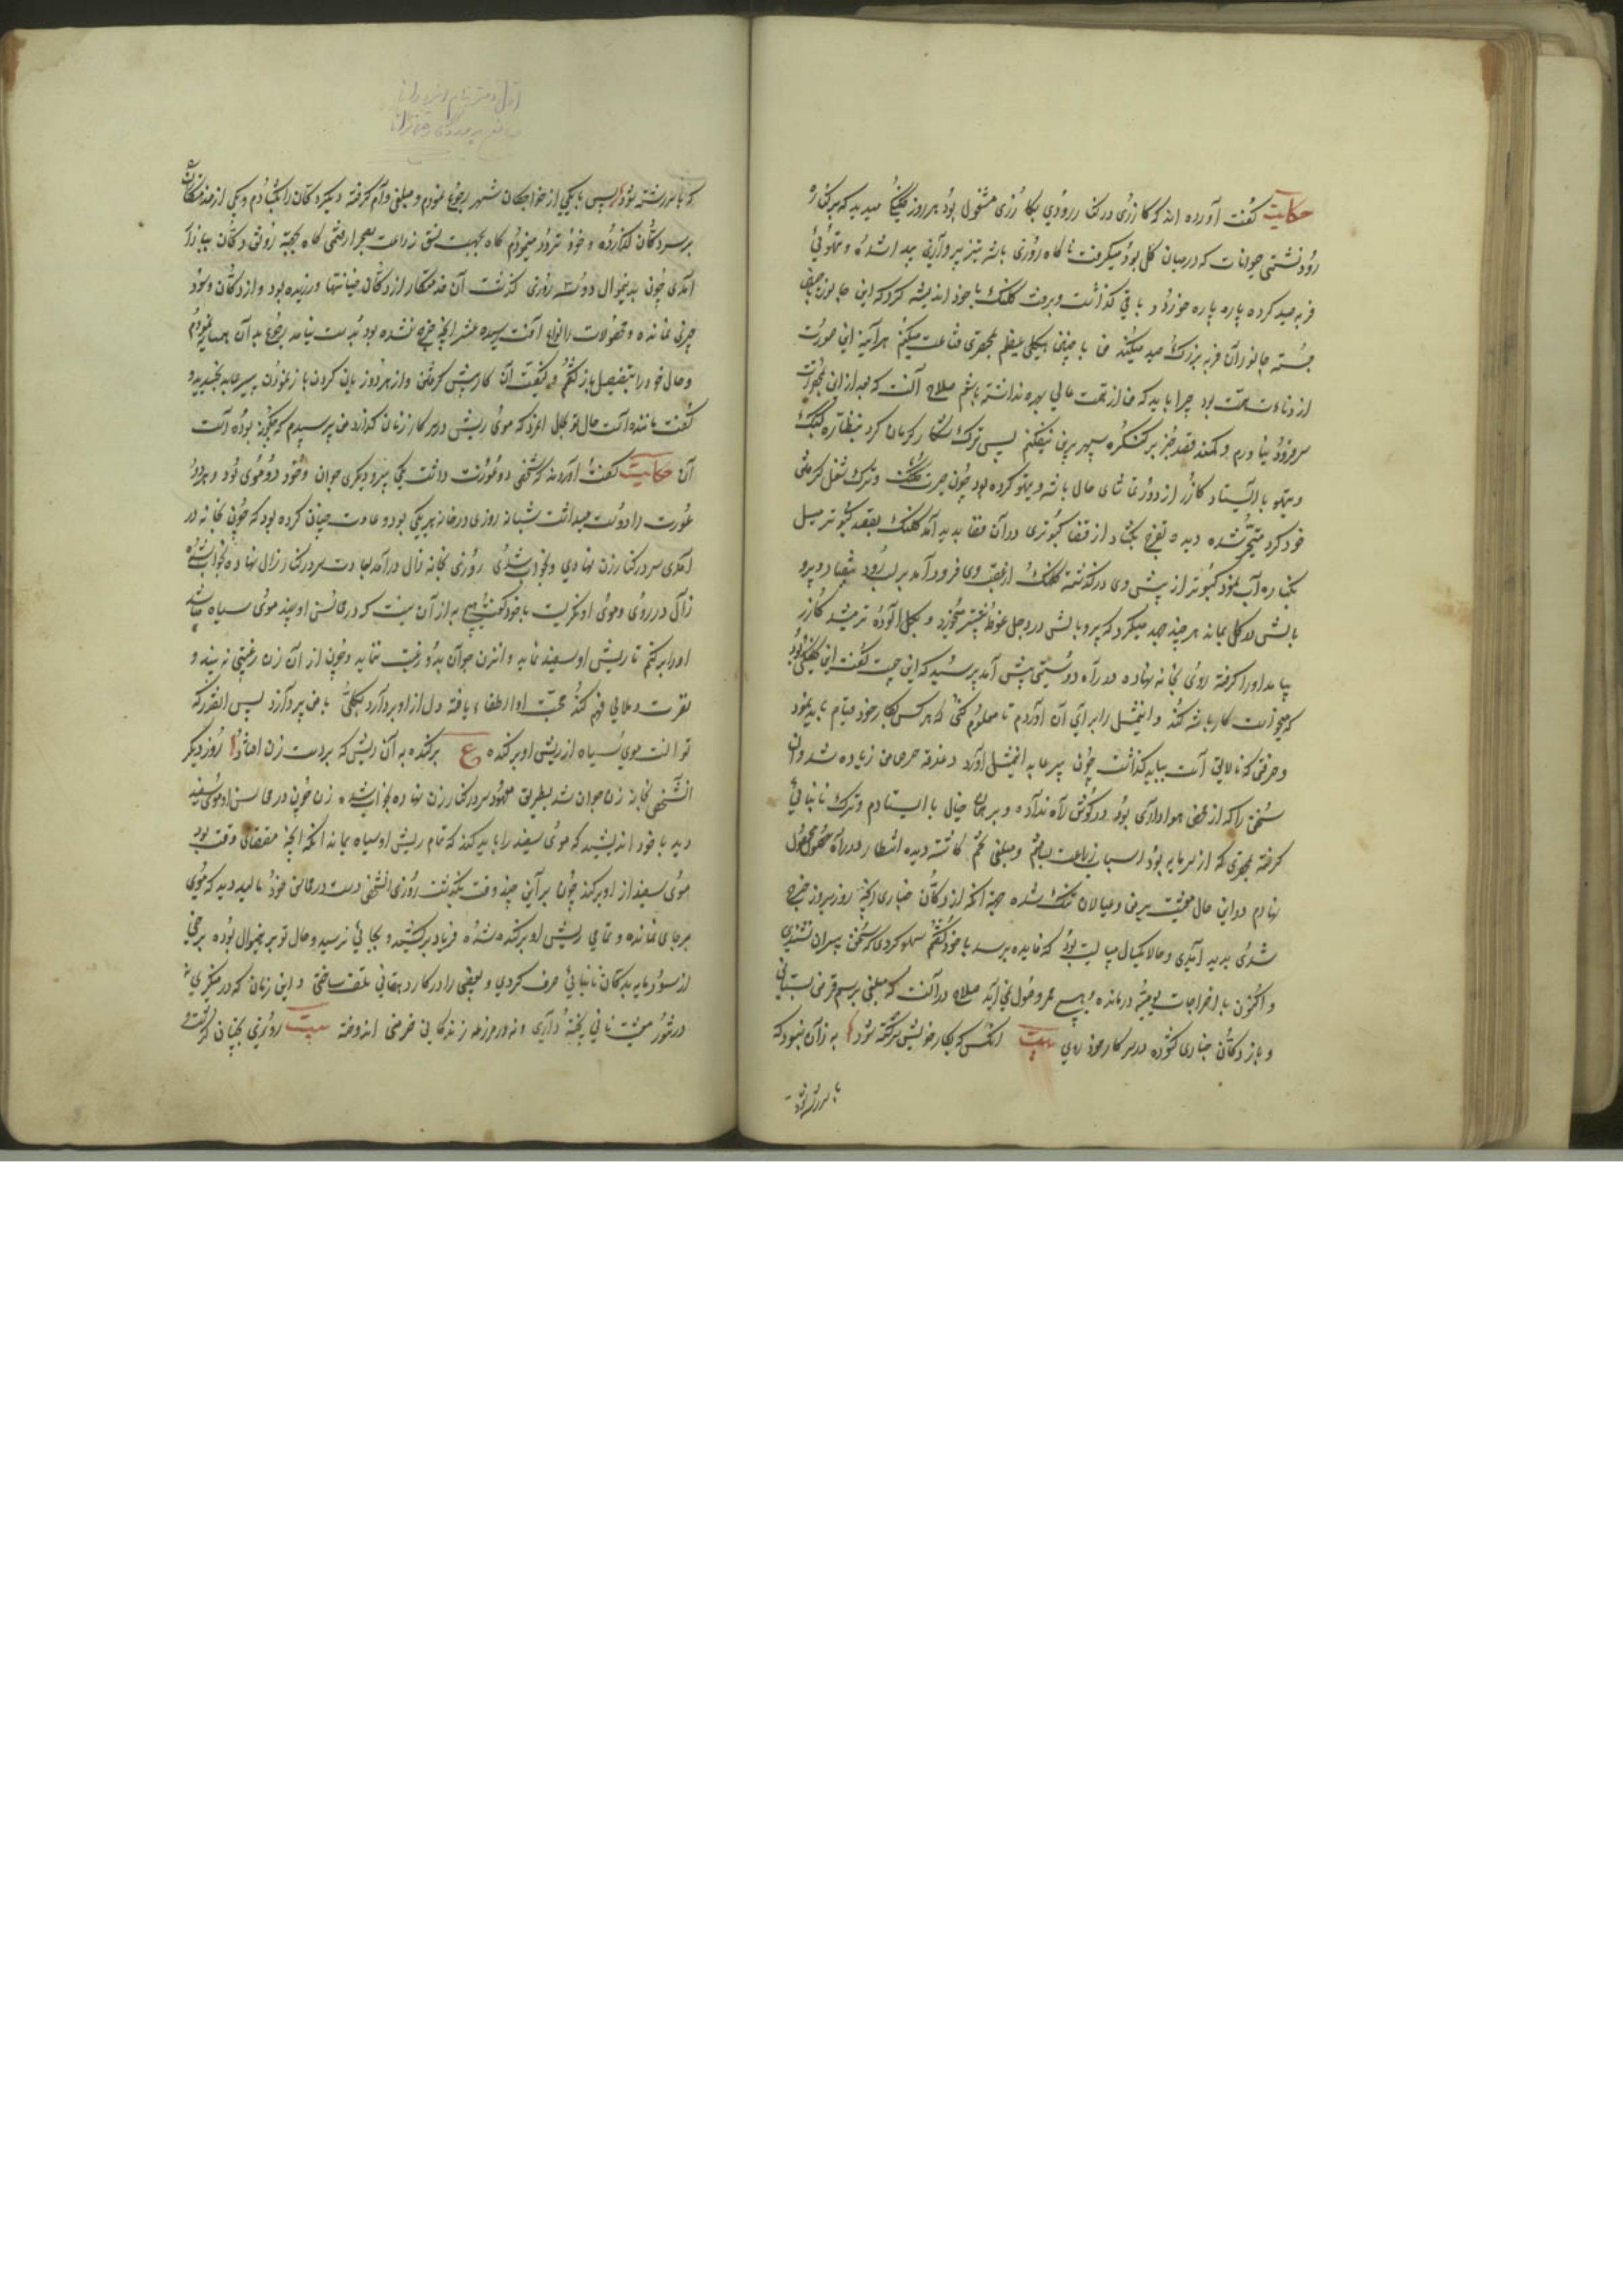 حکایت گفت آورده اند که کازری در کنار رودی بکازری مشغول بود هر روز کلنگی میدید که بر کناره
رود نشستی حیوانات که در میان گل بود میگرفت ناگاه روزی باشه تیز پرواز پیدا شده و تیهوئی
فربه صید کرده پاره پاره خورد و باقی گذاشت و برفت کلنگ با خود اندیشه کرد که این جانور ضعیف
جسته جانوران فربه بزرگ صید میکند من با چنین هیکلی عظیم بمحقری قناعت میکنم هر آینه این صورت
از دناءت همت بود چرا باید که من از همت عالی بهره نداشته باشم صلاح آنست که بعد از این بمحقرات
سر فرود نیاورم و کمند قصد جز بر کنگره سپهر برین نیفکنم پس ترک شکار کرمان کرد بنظاره
و تیهو باالستاد کازر از دور تماشای حال باشه و تیهو کرده بود چون حیرت کلنگ و ترک شغل کرمانی
خود کرد متحیر شده دیده تفرج بکشاد از قضا کبوتری در آن فضا پدید آمد کلنگ بقصد کبوتر میل
بکناره آب نمود کبوتر از پیش وی در گذشته کلنگ از عقب وی فرود آمد بر لب رود بیفتاد و پرو
بالش در گل بماند هر چند جهد میکرد که پر و بالش در وحل غوطه بیشتر میخورد و بگل آلوده تر میشد کازر
بیامد او را گرفته روی بخانه نهاده در راه دوستی پیش آمد پرسید که این چیست گفت این کلنگی بود
که میخواست کار باشه کند و این مثل را برای آن آوردم تا معلوم کنی که هر کس بکار خود قیام باید نمود
و حرفتی که نه لایق است بباید گذاشت چون پیر مایه این مثل آورد دغدغه حرص من زیاده شد و ان
سخن را که از محض هواداری بود در گوش راه ندادم و بر همان خیال باالستادم و ترک نانبائی
گرفته محقری که از سرمایه بود اسباب زراعت بساختم و مبلغی تخم کاشته دیده انتظار در راه حصول محصول
نهادم در این حال معیشت بر من و عیالان تنگ شده چه آنکه از دکان خبازی آنچه روز بروز خرج
شدی پدید آمدی و حالا یکسال میبایست بود که فایده برسد با خود گفتم سهو کردی که سخن پیران نشنیدی
و اکنون با خراجات یومیه درمانده و هیچ ممر وصول نمی آید صلاح در آنست که مبلغی برسم قرض بستانی
و باز دکان خبازی گشوده در سر کار خود روی بیت انکس که بکار خویش سرگشته شود به زآن نبود که
با سر رشته شود
که با سر رشته شود پس با یکی از خواجگان شهر رجوع نمودم و مبلغی وام گرفته دیگر دکان را بکشادم و یکی از خدمتکاران
بر سر دکان گذارده و خود تردد مینمودم گاه بجهت نسق زراعت بصحرا رفتمی گاه بجهة رونق دکان ببازار
آمدی چون بدینمنوال دو سه روزی گذشت آن خدمتکار از دکان خیانتها ورزیده بود و از دکان وجود
چیزی نمانده و محصولات را انواع آفت رسیده عشر آنچه خرج شده بود بدست نیامد رجوع به آن همسایه نمودم
و حال خود را بتفصیل باز گفتم و کیفیت آن کار پیش گرفتن و از هر دو زیان کردن باز نمودن پیر مایه بخندید و
گفت مانند است حال تو بحال آنمرد که موی ریش در سر کار زنان کرد من پرسیدم که چگونه بوده است
آن حکایت گفت آورده اند که شخصی دو عورت داشت یکی پیر و دیگری جوان و خود دو موی بود و هر دو
عورت را دوست میداشت شبانه روزی در خانه هر یکی بود و عادت چنان کرده بود که چون بخانه در
آمدی سر در کنار زن نهادی و بخواب شدی روزی بخانه زال در آمد بعادت سر در کنار زال نهاده بخواب شده
زال در روی و موی او نگریست با خود گفت هیچ به از آن نیست که در محاسن او چند موی سیاه میباشد
او را برکنم تا ریش او سفید نماید و آن زن جوان بدو رغبت ننماید و چون از آن زن رغبتی نه بیند و
نفرت و ملالی فهم کند محبت او انطفاء یافته دل از او بردارد بکلی با من پردازد پس آنقدر که
توانست موی سیاه از ریش او برکنده ع برکنده به آن ریش که بر دست زن افتاد روز دیگر
آنشخص بخانه زن جوان شد بطریق معهود سر در کنار زن نهاده بخواب شد زن چون در محاسن او موی سفید
دید با خود اندیشید که موی سفید را باید کند که تمام ریش او سیاه بماند آنکه آنچه مقتضای وقت بود
موی سفید از او برکند چون بر آین چند وقت بگذشت روزی آنشخص دست در محاسن خود مالید دید که موی
بر جای نمانده و تمامی ریش او برکنده شده فریاد برکشید و بجائی نرسید و حال تو برین منوال بوده برخی
از سرمایه بدکان نانبائی صرف کردی و بعضی را در کار دهقانی تلف ساختی و این زمان که در مینگری نه
در تنور معیشت نانی پخته داری و نه در مزرعه زندگانی خرمنی اندوخته بیت